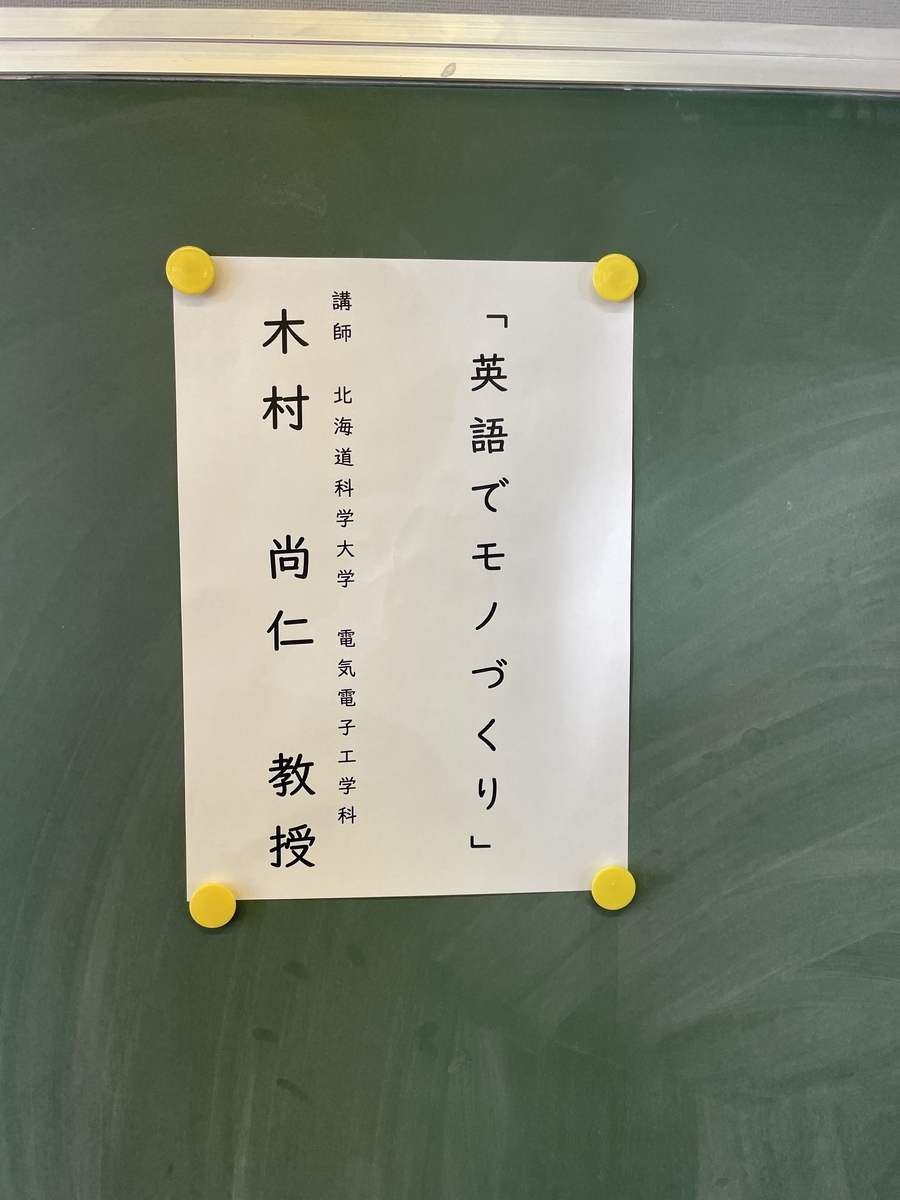 「英語でモノづくり」
講師　北海道科学大学　電気電子工学科
木村　尚仁　教授